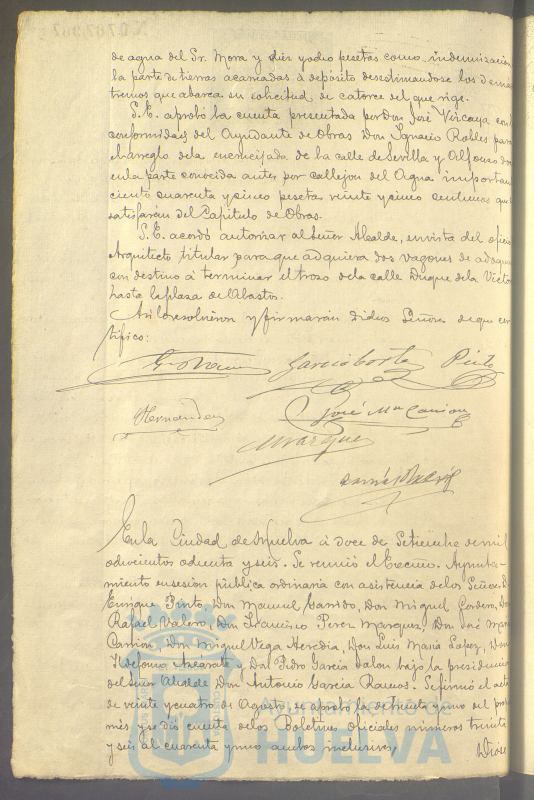 de agua del Sr. Mora y diez y ocho pesetas como indemnizacion
la parte de tierras acarriadas á depósito desestimandose los demás
tremos que abarca su solicitud de catorce del que rige.
S. E. aprobó la cuenta presentada por Don José Vizcaya con
conformidad del Ayudante de Obras Don Ignacio Robles para
el arreglo de la encrucijada de la calle de Sevilla y Alfonso doce
en la parte conocida antes por callejon del Agua importan
ciento cuarenta y cinco pesetas veinte y cinco centimos que
satisfarán del Capitulo de Obras.
S. E. acordó autorizar al Señor Alcalde, en vista del oficio
Arquitecto titular para que adquiera dos vagones de adoquin
con destino á terminar el trozo de la calle Duque de la Victoria
hasta la plaza de Abastos.
Asi lo resolvieron y firmarán dichos Señores de que cer
tifico:
Garcia Corta Pinto
Hernandez José Mª Carrion
Marquez
En la Ciudad de Huelva á doce de Setiembre de mil
ochocientos ochenta y seis. Se reunió el Excmo. Ayunta-
miento en sesion pública ordinaria con asistencia de los Señores D.
Enrique Pinto, Don Manuel Garrido, Don Miguel Cordero, Don
Rafael Valero, Don Francisco Perez Marquez, Don José Maria
Carrion, Don Miguel Vega Heredia, Don Luis Maria Lopez, Don
Ildefonso Azcarate y Don Pedro Garcia Jalon bajo la presidencia
del Señor Alcalde Don Antonio Garcia Ramos. Se firmó el acta
de veinte y cuatro de Agosto, se aprobó la de treinta y uno del prop
mes y se dió cuenta de los Boletines oficiales numeros treinta
y seis al cuarenta y uno ambos inclusives,
Diose
Ayuntamiento de
HUELVA